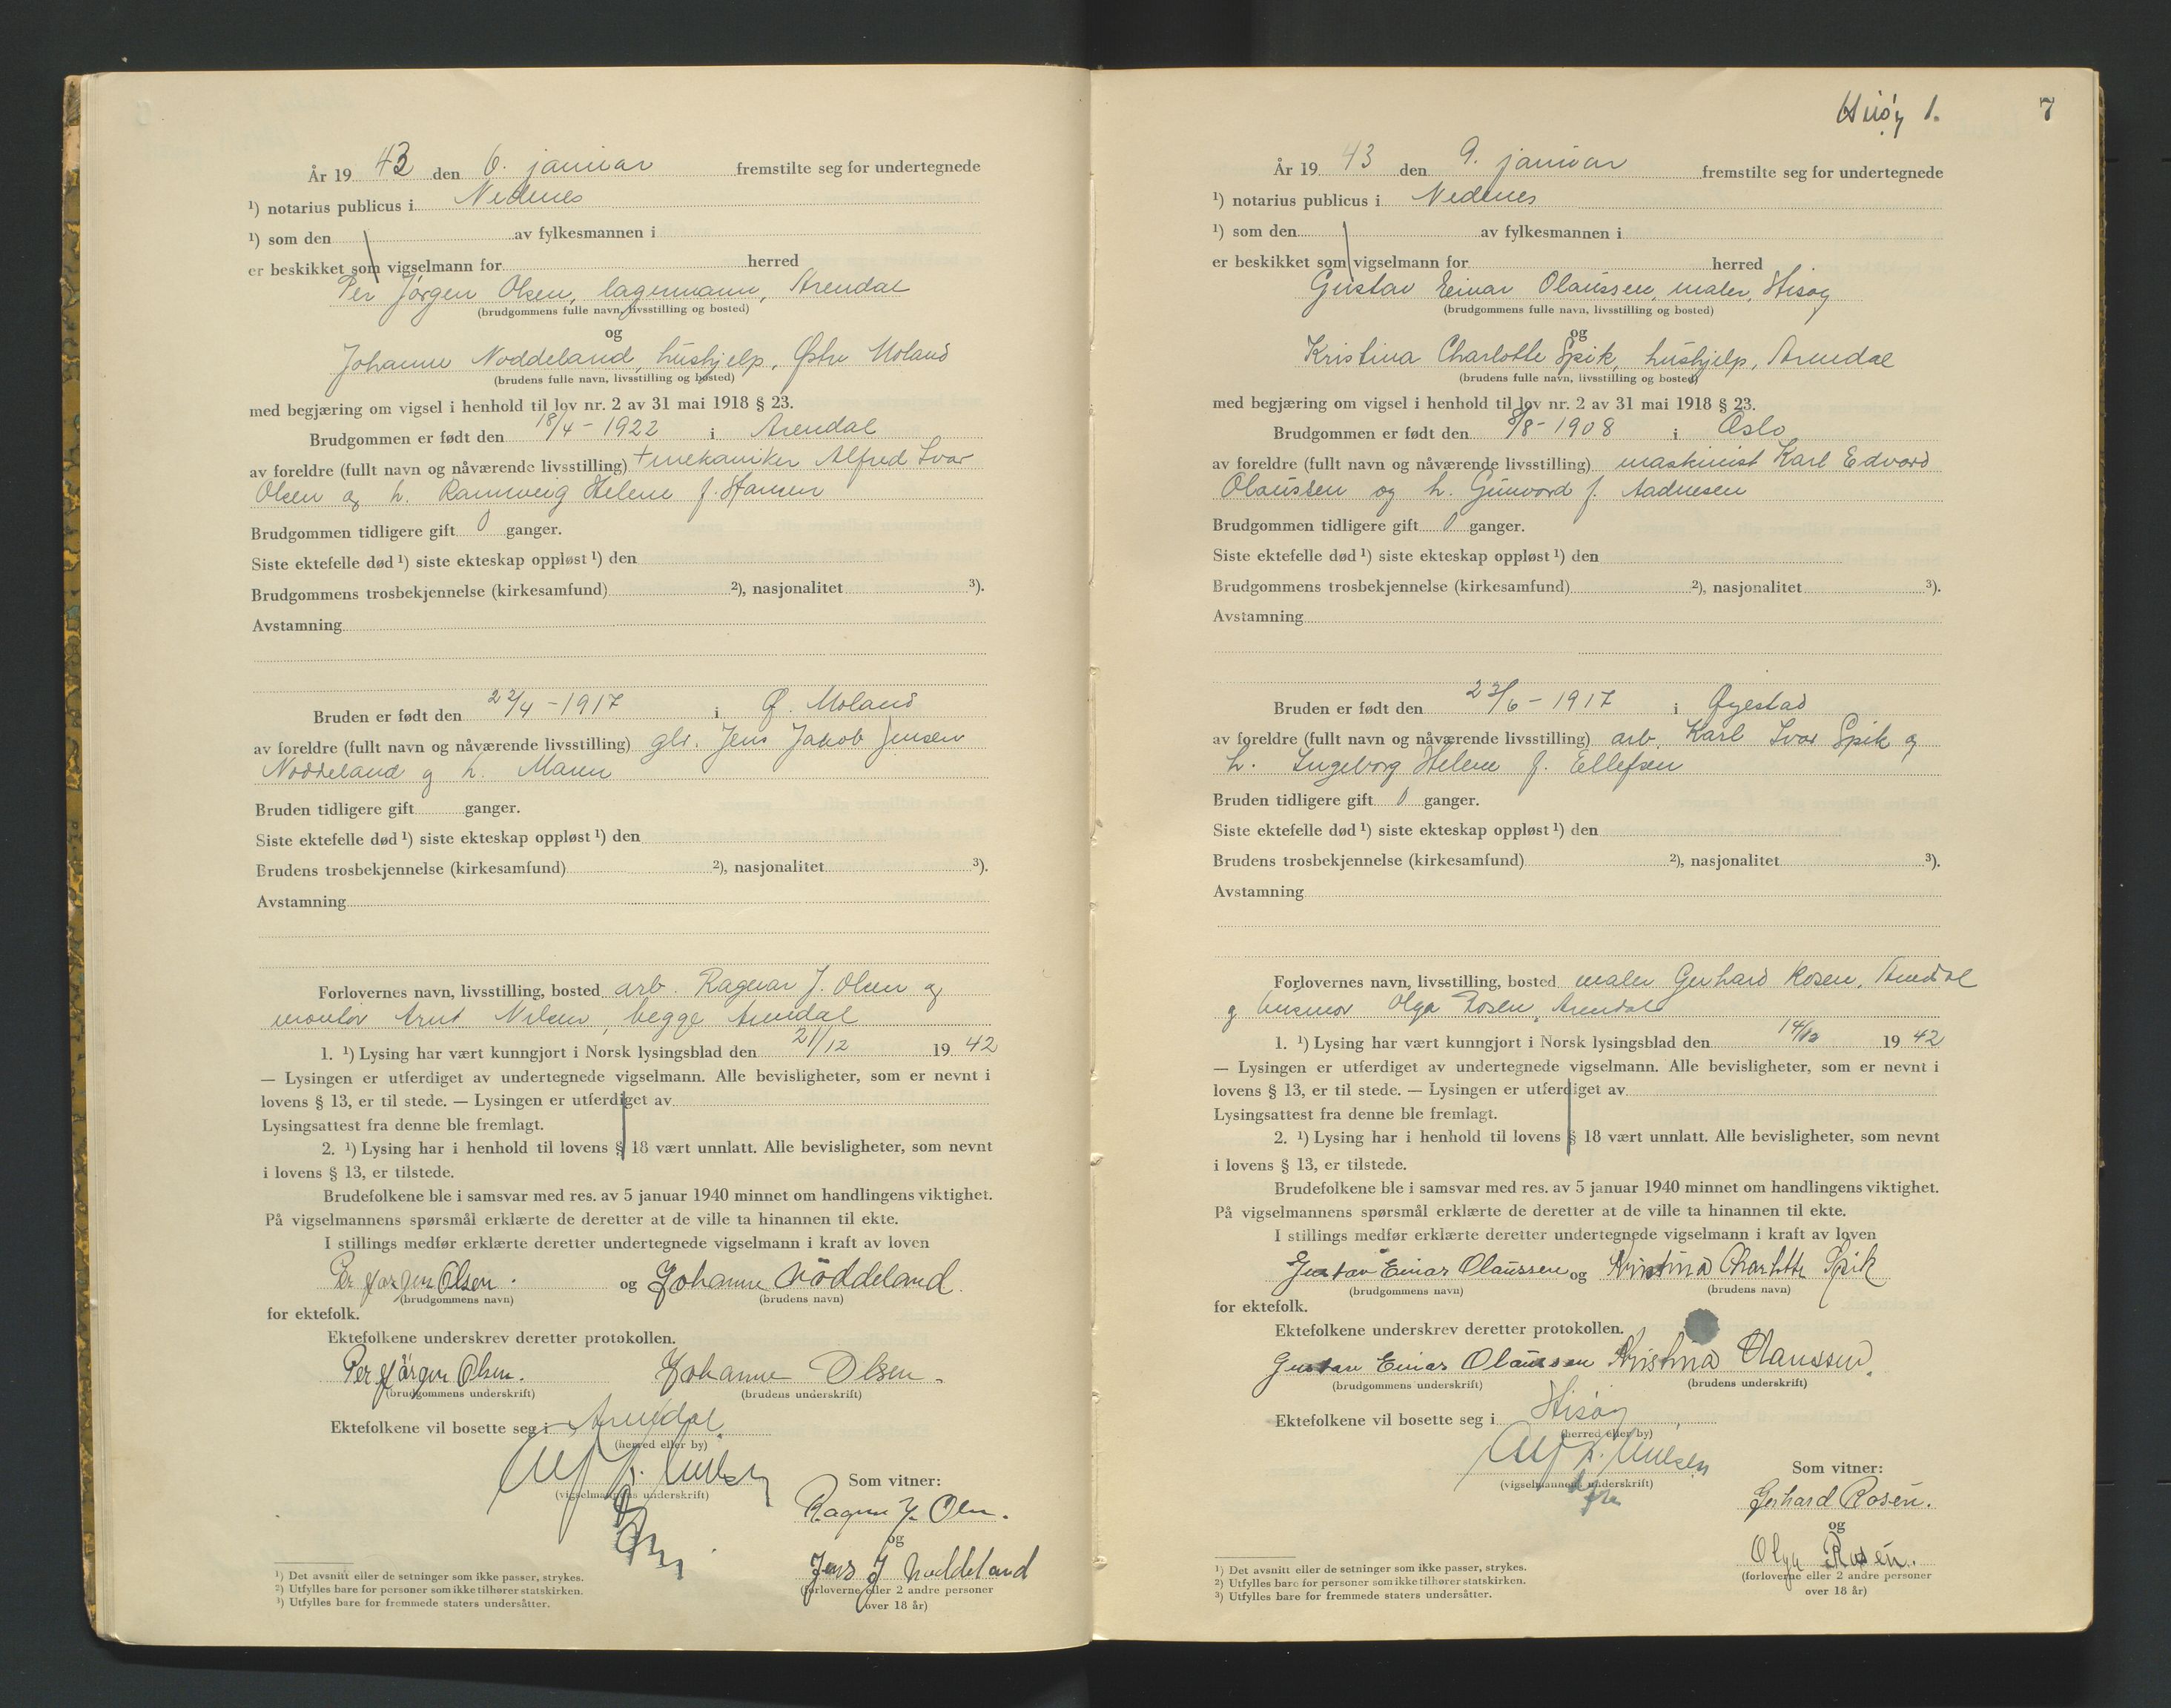 År 19 43 den 6. januar fremstilte seg for undertegnede
¹) notarius publicus i Nedenes
¹) som den av fylkesmannen i
er beskikket som vigselmann for herred
Per Jørgen Olsen, lagermann, Arendal
(brudgommens fulle navn, livsstilling og bosted)
og
Johanne Noddeland, hushjelp, Østre Moland
(brudens fulle navn, livsstilling og bosted)
med begjæring om vigsel i henhold til lov nr. 2 av 31 mai 1918 § 23.
Brudgommen er født den 18/4 - 1922 i Arendal
av foreldre (fullt navn og nåværende livsstilling) + mekaniker Alfred Ivar
Olsen og h. Rannveig Helene f. Hansen
Brudgommen tidligere gift 0 ganger.
Siste ektefelle død ¹) siste ekteskap oppløst ¹) den
Brudgommens trosbekjennelse (kirkesamfund) ²), nasjonalitet ³).
Avstamning
Bruden er født den 22/4 - 1917 i Ø. Moland
av foreldre (fullt navn og nåværende livsstilling) Jens Jakob Jensen
Noddeland og h. Maren
Bruden tidligere gift ganger.
Siste ektefelle død ¹) siste ekteskap oppløst ¹) den
Brudens trosbekjennelse (kirkesamfund) ²), nasjonalitet ³).
Avstamning
Forlovernes navn, livsstilling, bosted arb. Ragnar J. Olsen og
montør Arnt Nilsen, begge Arendal
1. ¹) Lysing har vært kunngjort i Norsk lysingsblad den 21/12 19 42
— Lysingen er utferdiget av undertegnede vigselmann. Alle bevisligheter, som er nevnt i
lovens § 13, er til stede. — Lysingen er utferdiget av
Lysingsattest fra denne ble fremlagt.
2. ¹) Lysing har i henhold til lovens § 18 vært unnlatt. Alle bevisligheter, som nevnt
i lovens § 13, er tilstede.
Brudefolkene ble i samsvar med res. av 5 januar 1940 minnet om handlingens viktighet.
På vigselmannens spørsmål erklærte de deretter at de ville ta hinannen til ekte.
I stillings medfør erklærte deretter undertegnede vigselmann i kraft av loven
Per Jørgen Olsen. og Johanne Nöddeland.
(brudgommens navn) (brudens navn)
for ektefolk.
Ektefolkene underskrev deretter protokollen.
Per Jörgen Olsen. Johanne Olsen.
(brudgommens underskrift) (brudens underskrift)
Ektefolkene vil bosette seg i Arendal
(herred eller by)
(vigselmannens underskrift)
Som vitner:
Ragnar J. Olsen.
og
Jens J Noddeland
(forloverne eller 2 andre personer
over 18 år)
¹) Det avsnitt eller de setninger som ikke passer, strykes.
²) Utfylles bare for personer som ikke tilhører statskirken.
³) Utfylles bare for fremmede staters undersåtter.
Hisøy 1.
7
År 19 43 den 9. januar fremstilte seg for undertegnede
¹) notarius publicus i Nedenes
¹) som den av fylkesmannen i
er beskikket som vigselmann for herred
Gustav Einar Olaussen, maler, Hisøy
(brudgommens fulle navn, livsstilling og bosted)
og
Kristina Charlotte Spik, hushjelp, Arendal
(brudens fulle navn, livsstilling og bosted)
med begjæring om vigsel i henhold til lov nr. 2 av 31 mai 1918 § 23.
Brudgommen er født den 8/8 - 1908 i Oslo
av foreldre (fullt navn og nåværende livsstilling) maskinist Karl Edvard
Olaussen og h. Gunvord f. Aadnesen
Brudgommen tidligere gift 0 ganger.
Siste ektefelle død ¹) siste ekteskap oppløst ¹) den
Brudgommens trosbekjennelse (kirkesamfund) ²), nasjonalitet ³).
Avstamning
Bruden er født den 23/6 - 1917 i Øyestad
av foreldre (fullt navn og nåværende livsstilling) arb. Karl Ivar Spik og
h. Ingeborg Helene f. Ellefsen
Bruden tidligere gift 0 ganger.
Siste ektefelle død ¹) siste ekteskap oppløst ¹) den
Brudens trosbekjennelse (kirkesamfund) ²), nasjonalitet ³).
Avstamning
Forlovernes navn, livsstilling, bosted maler Gerhard Rosen, Arendal
og husmor Olga Rosen, Arendal
1. ¹) Lysing har vært kunngjort i Norsk lysingsblad den 14/12 19 42
— Lysingen er utferdiget av undertegnede vigselmann. Alle bevisligheter, som er nevnt i
lovens § 13, er til stede. — Lysingen er utferdiget av
Lysingsattest fra denne ble fremlagt.
2. ¹) Lysing har i henhold til lovens § 18 vært unnlatt. Alle bevisligheter, som nevnt
i lovens § 13, er tilstede.
Brudefolkene ble i samsvar med res. av 5 januar 1940 minnet om handlingens viktighet.
På vigselmannens spørsmål erklærte de deretter at de ville ta hinannen til ekte.
I stillings medfør erklærte deretter undertegnede vigselmann i kraft av loven
Gustav Einar Olaussen og Kristina Charlotte Spik
(brudgommens navn) (brudens navn)
for ektefolk.
Ektefolkene underskrev deretter protokollen.
Gustav Einar Olaussen Kristina Olaussen.
(brudgommens underskrift) (brudens underskrift)
Ektefolkene vil bosette seg i Hisøy
(herred eller by)
(vigselmannens underskrift)
Som vitner:
Gerhard Rosén.
og
Olga Rosén.
(forloverne eller 2 andre personer
over 18 år)
¹) Det avsnitt eller de setninger som ikke passer, strykes.
²) Utfylles bare for personer som ikke tilhører statskirken.
³) Utfylles bare for fremmede staters undersåtter.